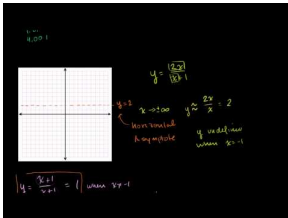 4.001
y = 2x / x+1
x→±∞ y≈ 2x/x = 2
y=2
Horizontal
Asymptote
y undefined
when x=-1
y = x+1 / x+1 = 1 when x≠-1